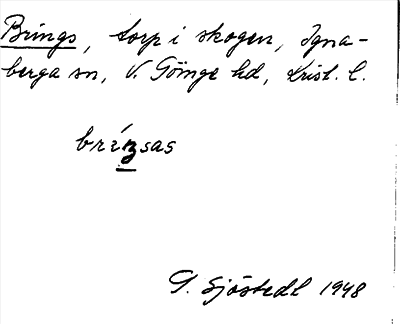 Brings, torp i skogen, Igna-
berga sn, V. Göinge hd, Krist. l.
brɪ́ŋsas
G. Sjöstedt 1948